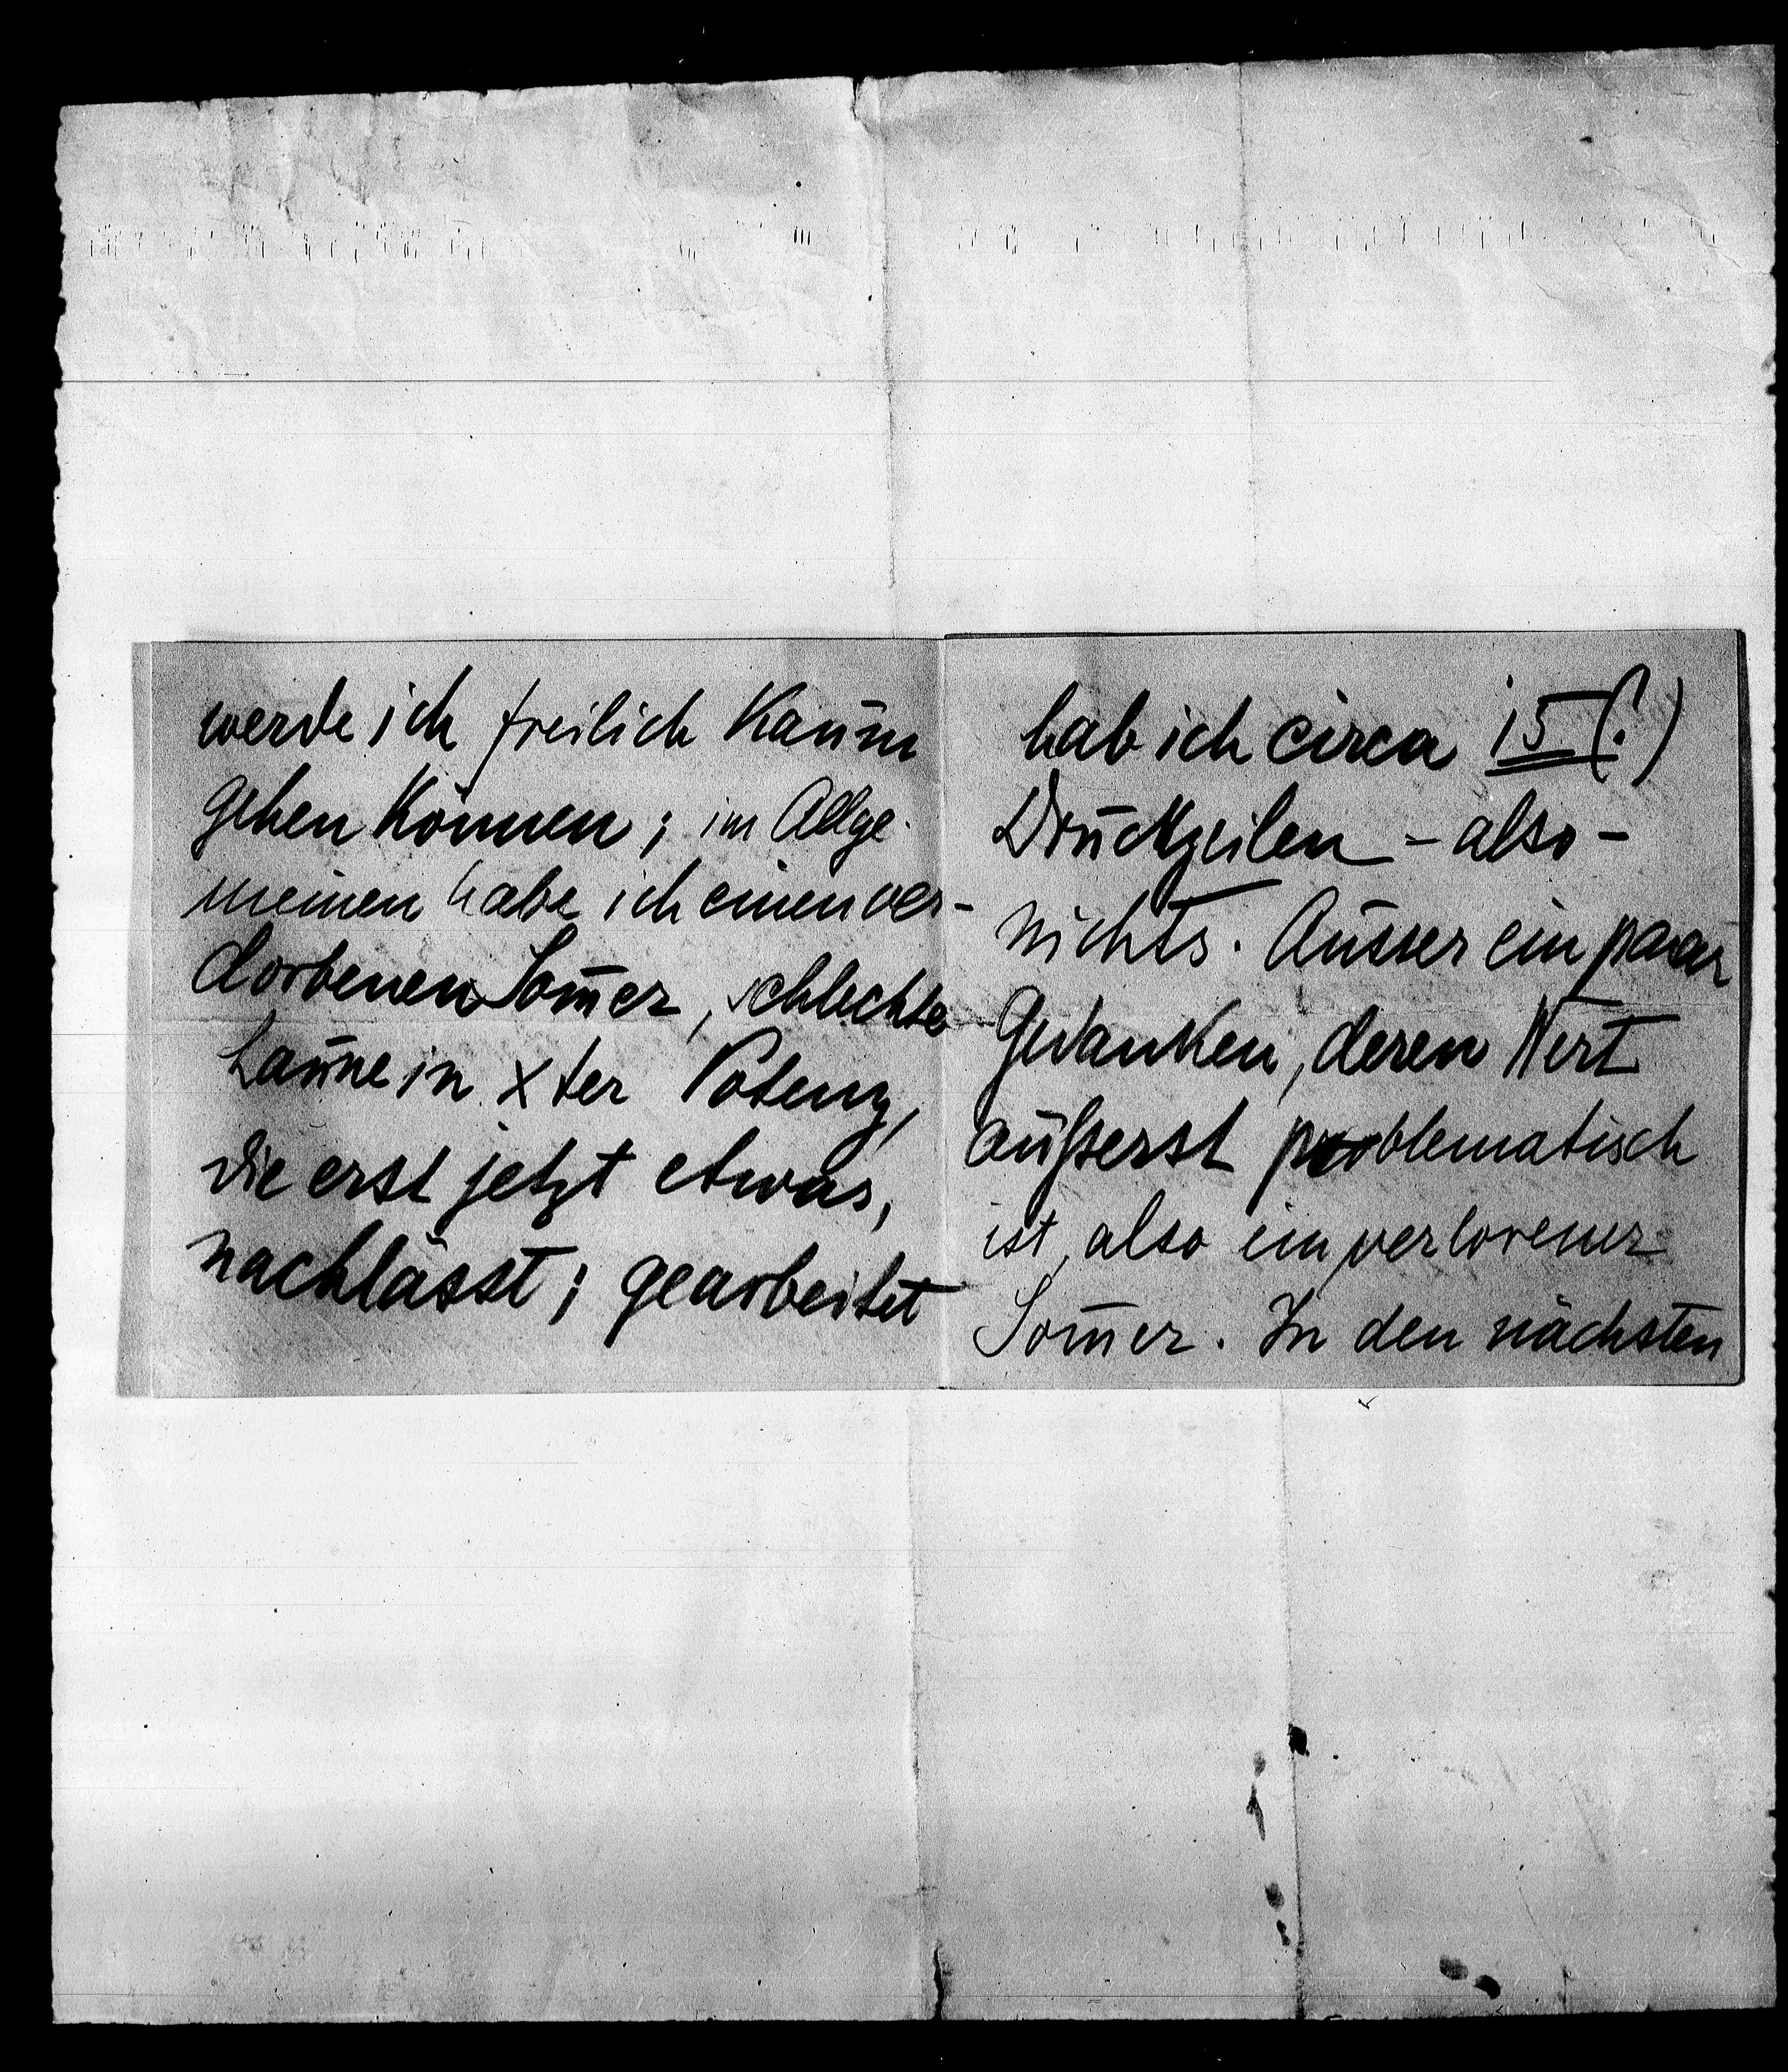 werde ich freilich kaum
gehen können; im Allge-
meinen habe ich einen ver-
dorbenen Som̅er, schlechte
Laune in xter Potenz,
die erst jetzt etwas,
nachlässt; gearbeitet
hab ich circa 15 (?)
Druckzeilen – also –
nichts. Ausser ein paar
Gedanken, deren Wert
äußerst problematisch
ist, also ein verlorener
Som̅er. In den nächsten